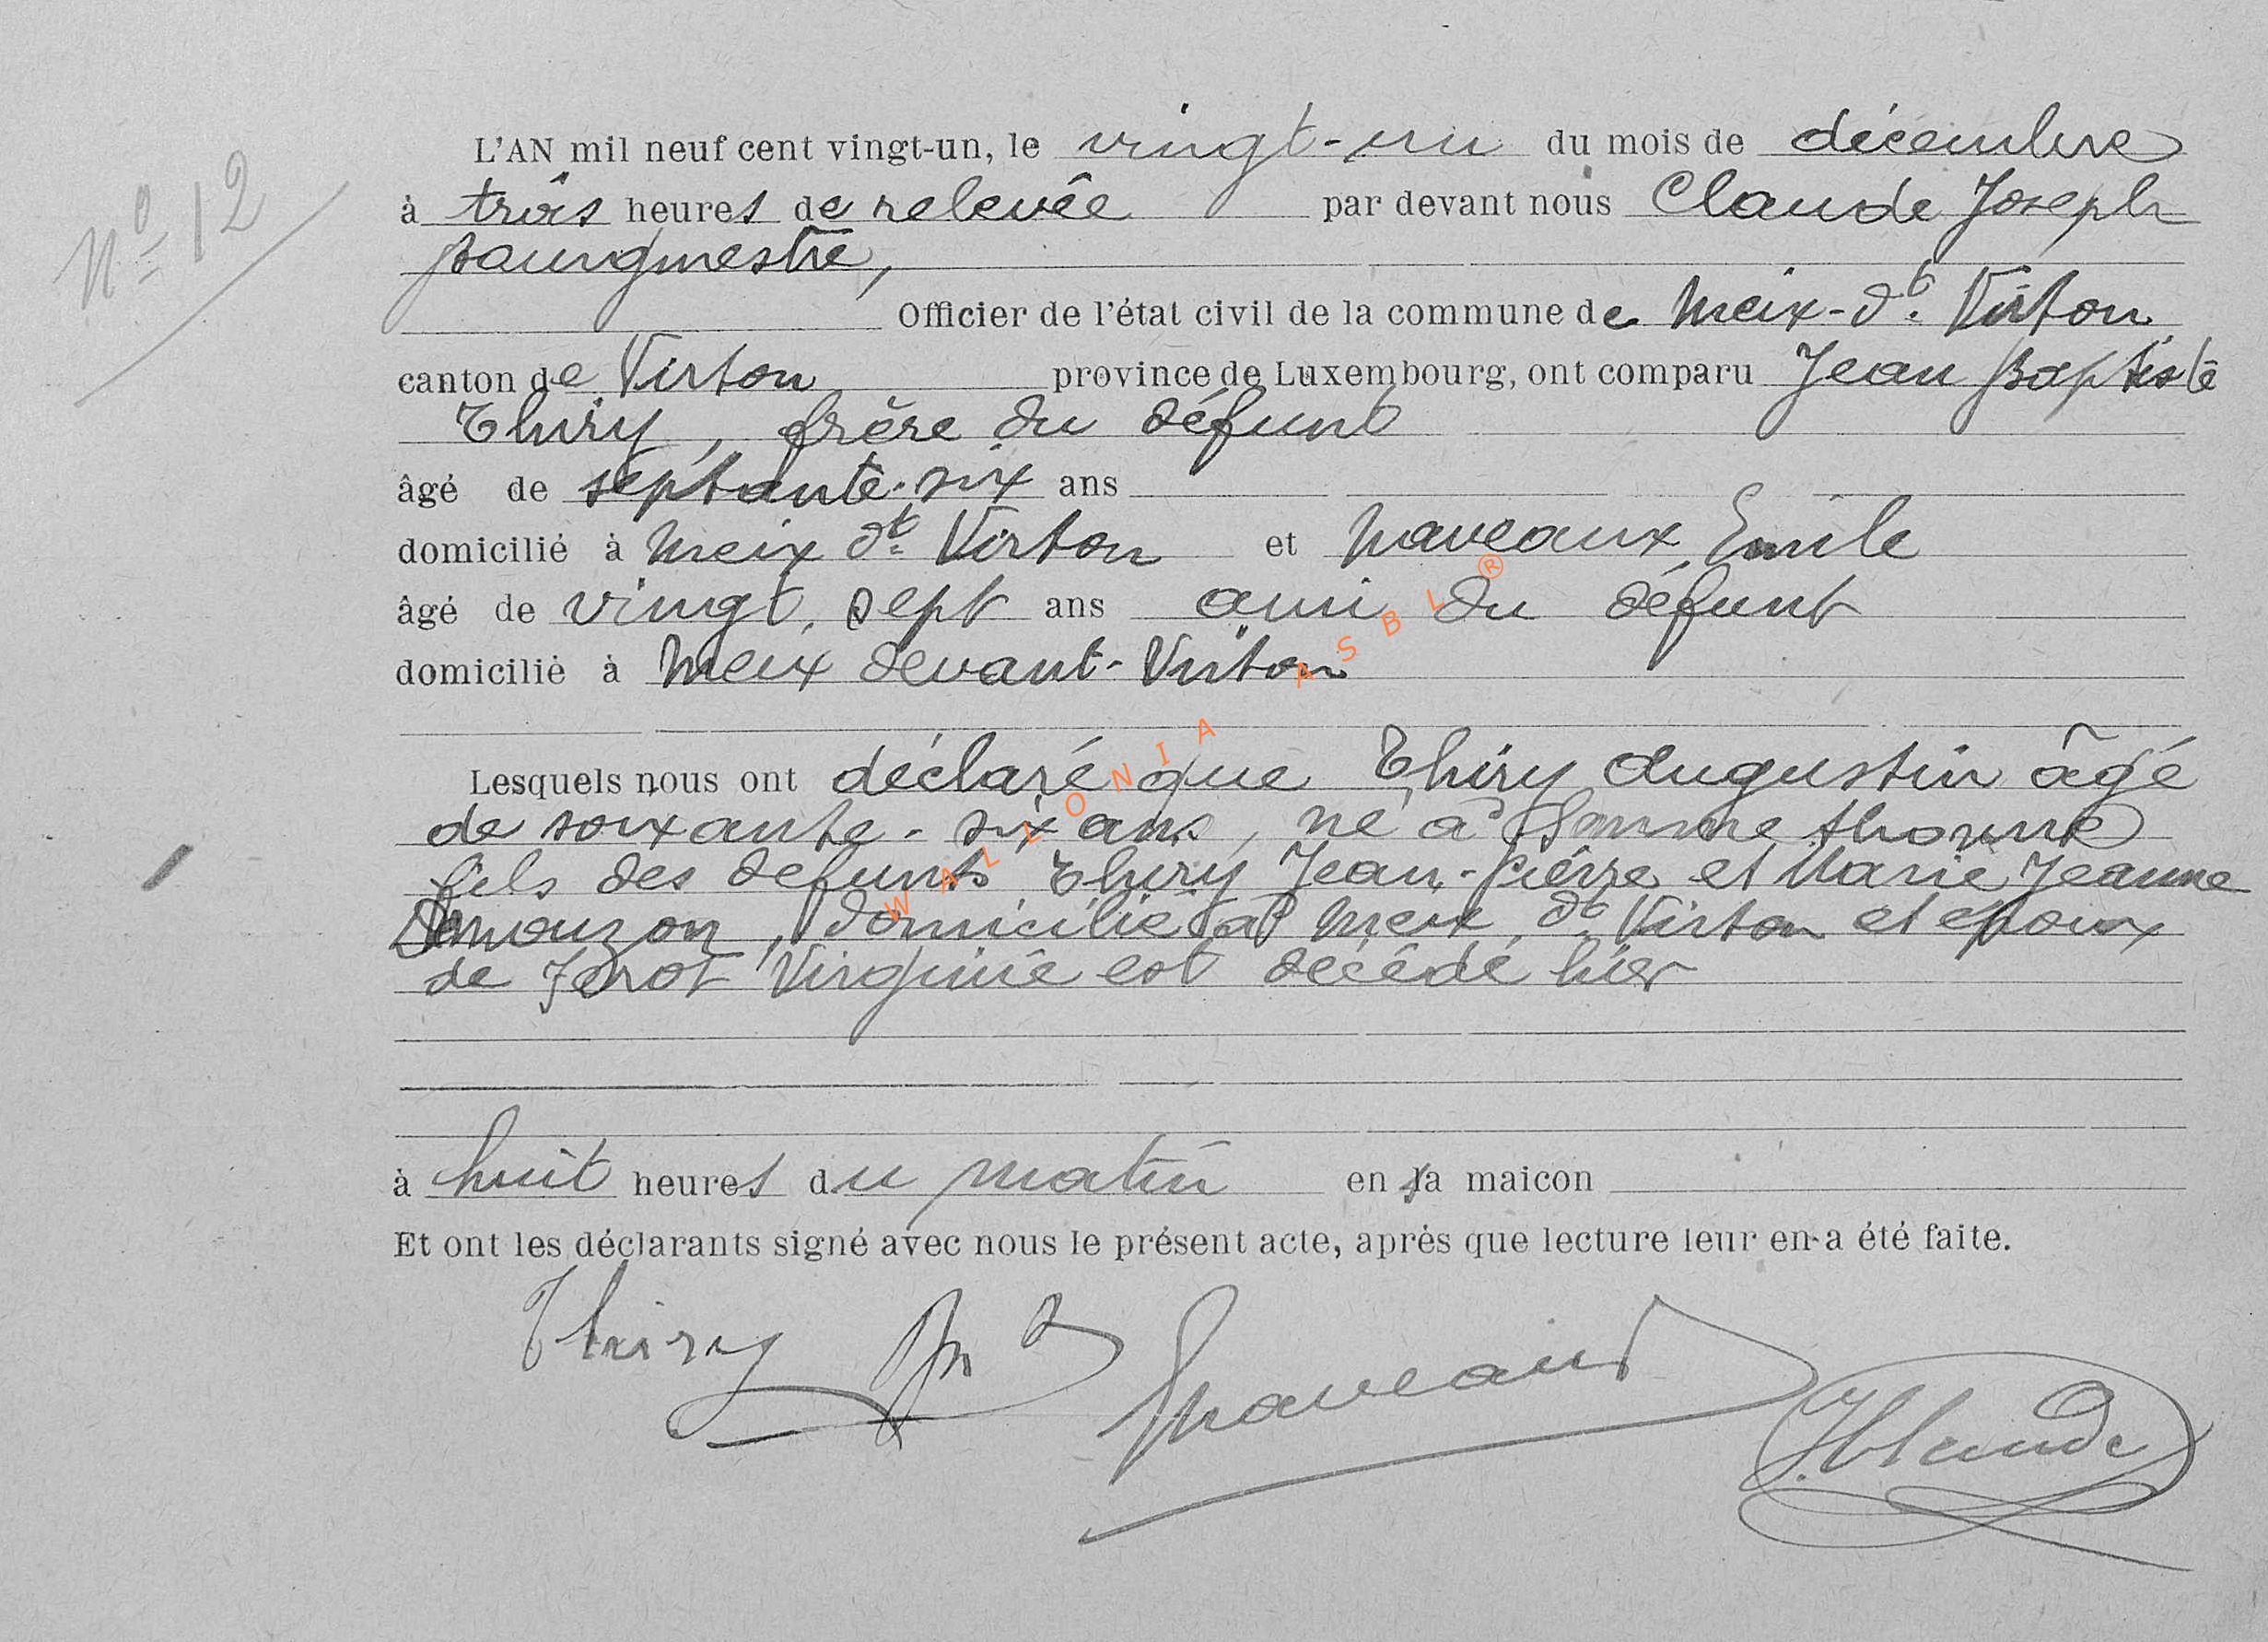 N° 12
L'AN mil neuf cent vingt-un, le vingt-un du mois de décembre
à trois heures de relevée par devant nous Claude Joseph
bourgmestre,
Officier de l'état civil de la commune de Meix-dt. Virton
canton de Virton province de Luxembourg, ont comparu Jean Baptiste
Thiry, frère du défunt
âgé de septante-six ans
domicilié à Meix dt Virton et Naveaux Emile
âgé de vingt-sept ans ami du défunt
domicilié à Meix devant-Virton
Lesquels nous ont déclaré que Thiry Augustin âgé
de soixante-six ans, né à thonne
fils des defunts Thiry Jean-Pierre et Marie Jeanne
, domicilié à Meix dt Virton et époux
de Virginie est décédé hier
à huit heures du matin en sa maicon
Et ont les déclarants signé avec nous le présent acte, après que lecture leur en a été faite.
Thiry Naveaux J Claude
WALLONIA ASBL ®